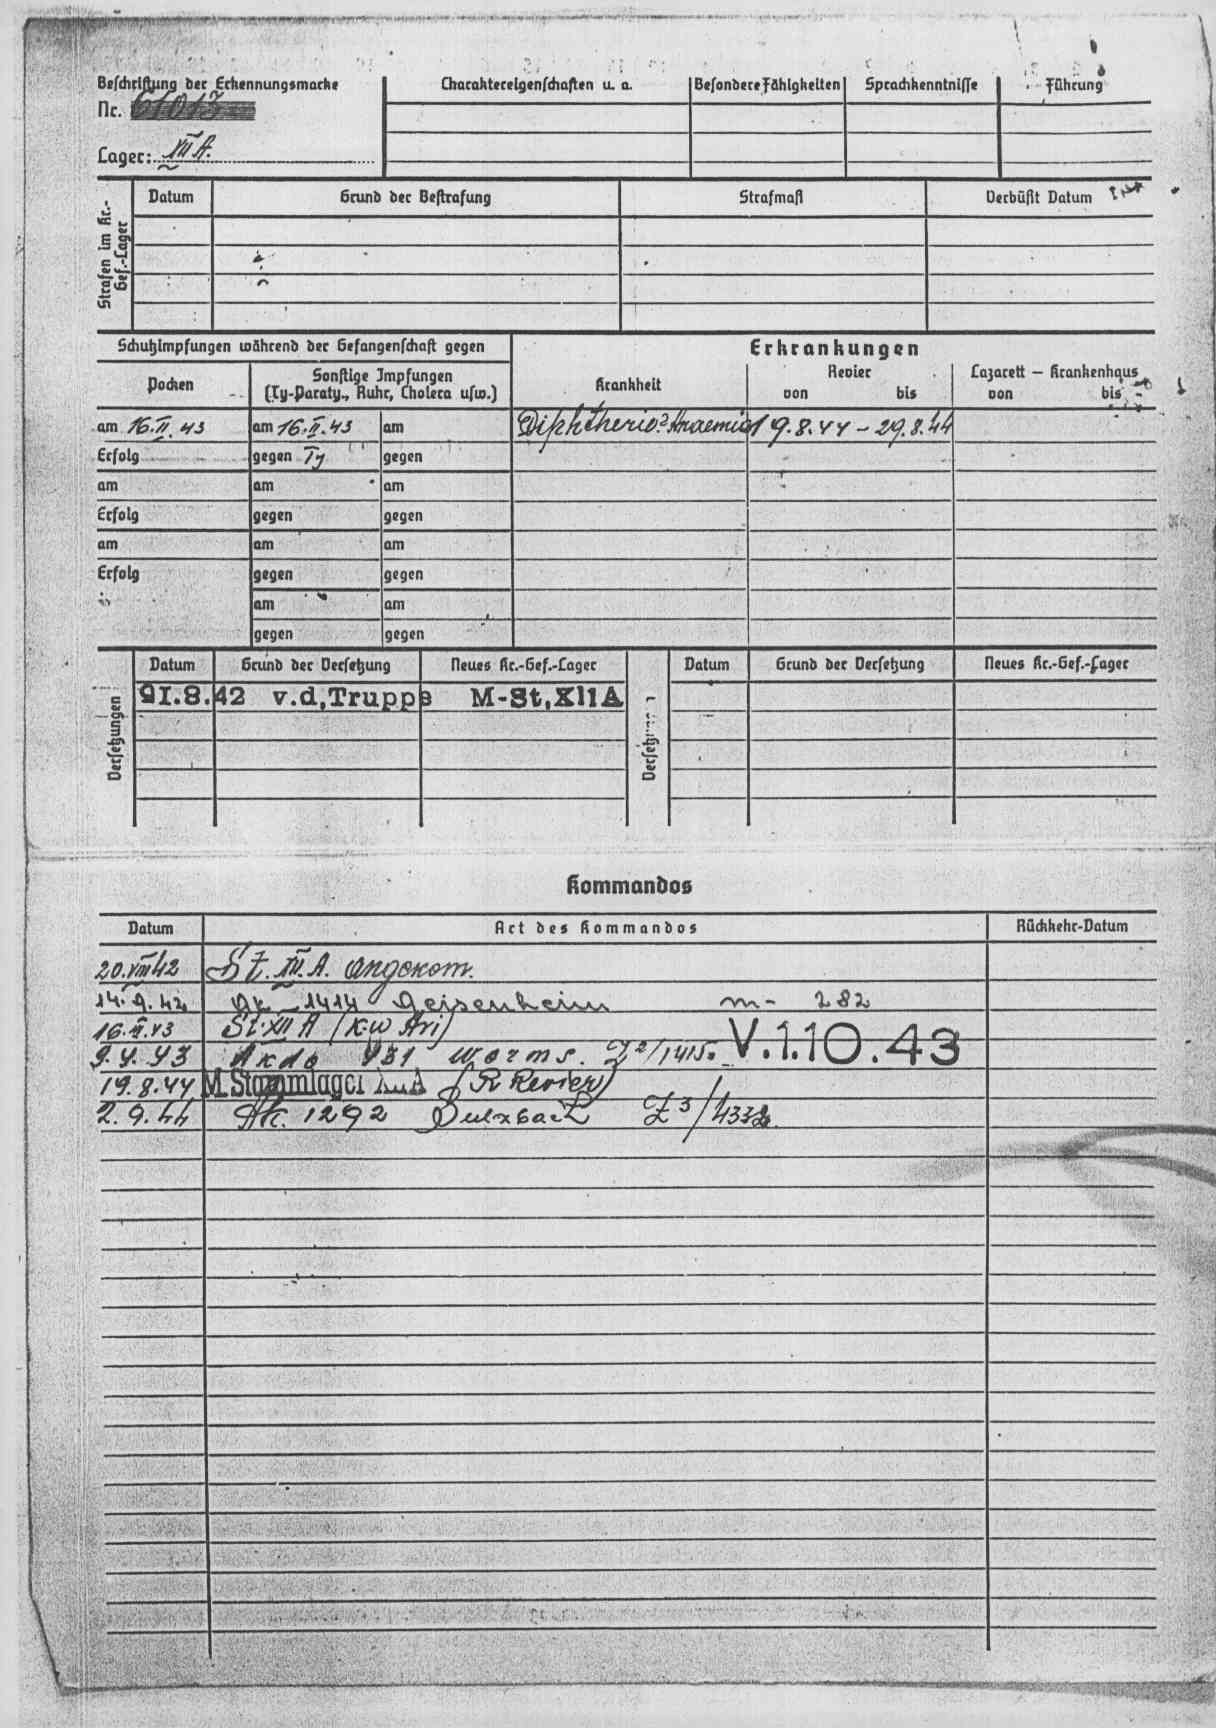 Beschriftung der Erkennungsmarke
Nr. 61013
Lager: XII A.
Charaktereigenschaften u. a. Besondere Fähigkeiten Sprachkenntnisse Führung
Strafen im Kr.-Gef.-Lager
Datum Grund der Bestrafung Strafmaß Verbüßt Datum
Schutzimpfungen während der Gefangenschaft gegen
Erkrankungen
Pocken
Sonstige Impfungen
(Ty-Paraty., Ruhr, Cholera usw.)
Krankheit
Revier
von bis
Lazarett – Krankenhaus
von bis
am 16.II.43 am 16.II.43 am Diphtherie? Anaemie 19.8.44 – 29.8.44
Erfolg gegen Ty gegen
am am am
Erfolg gegen gegen
am am am
Erfolg gegen gegen
am am
gegen gegen
Versetzungen
Datum Grund der Versetzung Neues Kr.-Gef.-Lager
Datum Grund der Versetzung Neues Kr.-Gef.-Lager
21.8.42 v.d,Truppe M-St,XIIA
Kommandos
Datum Art des Kommandos Rückkehr-Datum
20.VIII42 St. XII. A. angekom.
14.9.42 Ak 1414 Geisenheim m- 282
16.II.43 St. XII A
9.4.43 Akdo 931 Worms. Z2/1415. V.1.10.43
19.8.44 M. Stammlager XII A (R Revier)
2.9.44 Ak. 1292 Sulzbach Z3/4332